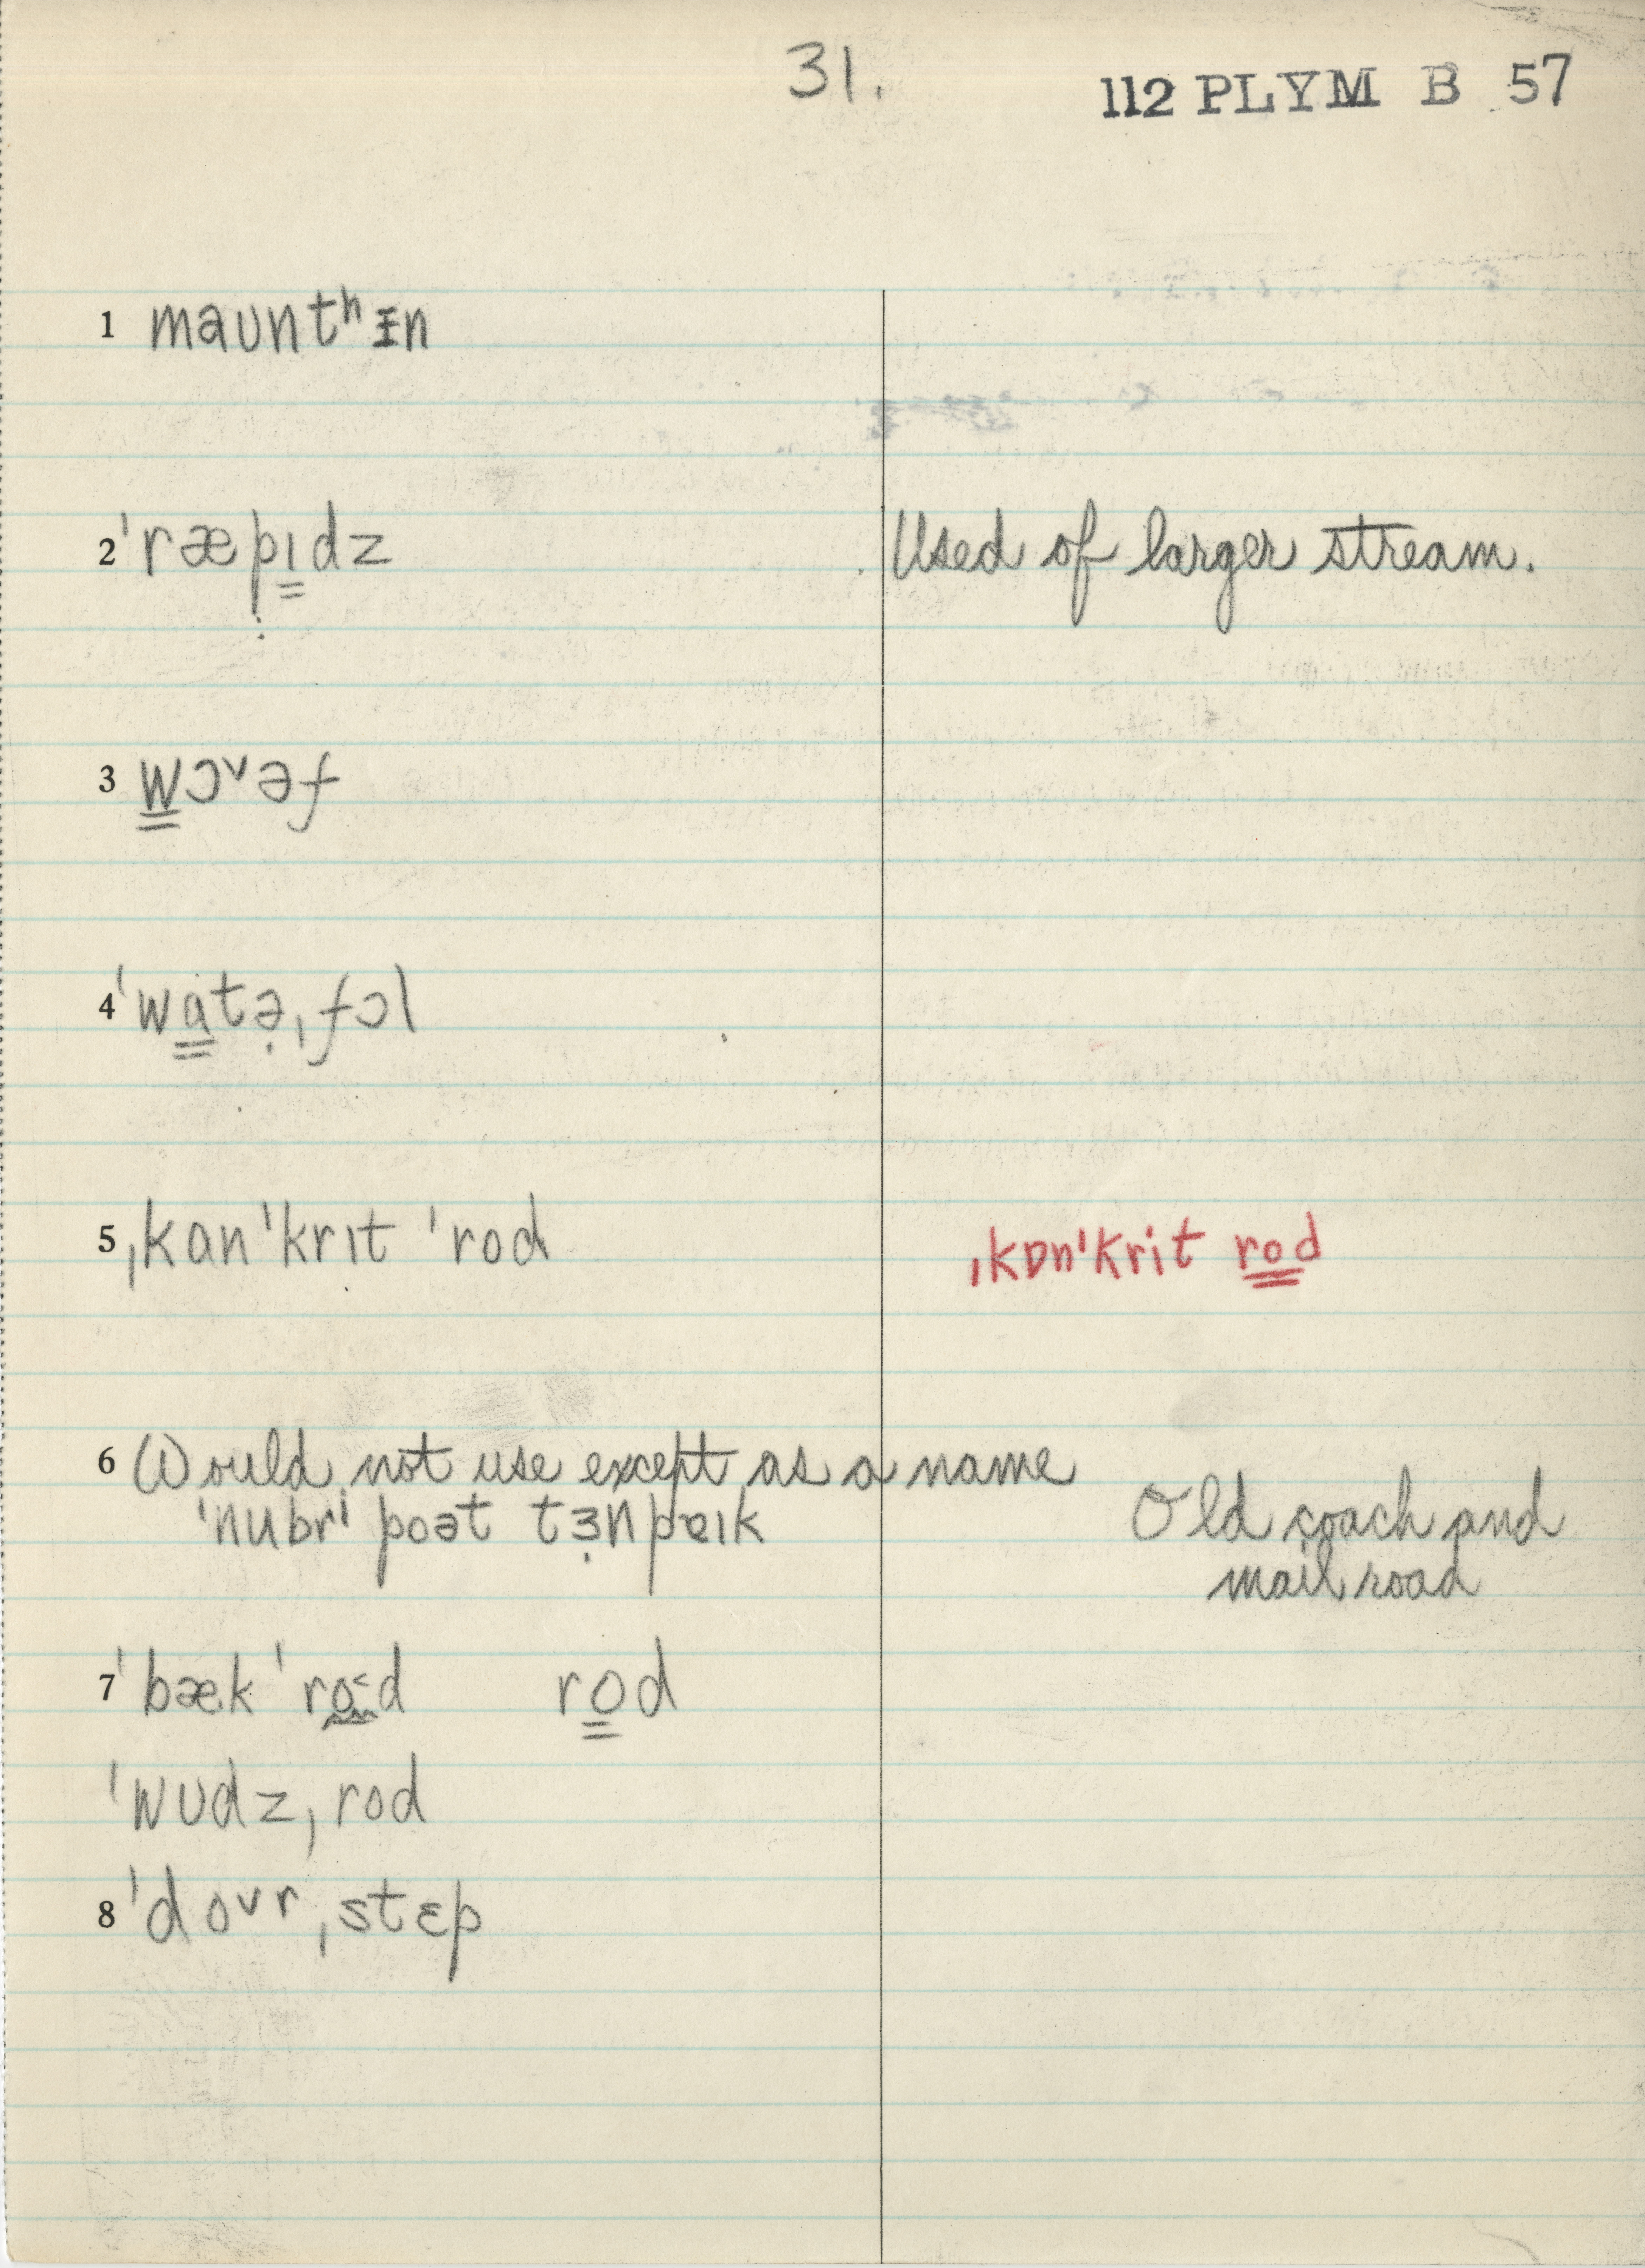 31.
112 PLYM B 57
1 maʊntʰᵻn
2 ˈræpɪdz Used of larger stream.
3 wɔᵛəf
4 ˈwatə̣ˌfɔl
5 ˌkɑnˈkrɪt ˈrod ˌkɒnˈkrit rod
6 Would not use except as a name
ˈnubrⁱ poət tɜ̣npɐɪk Old coach and
mail road
7 ˈbæk ˈro˂d rod
ˈwʊdzˌrod
8 ˈdoᵛrˌstɛp